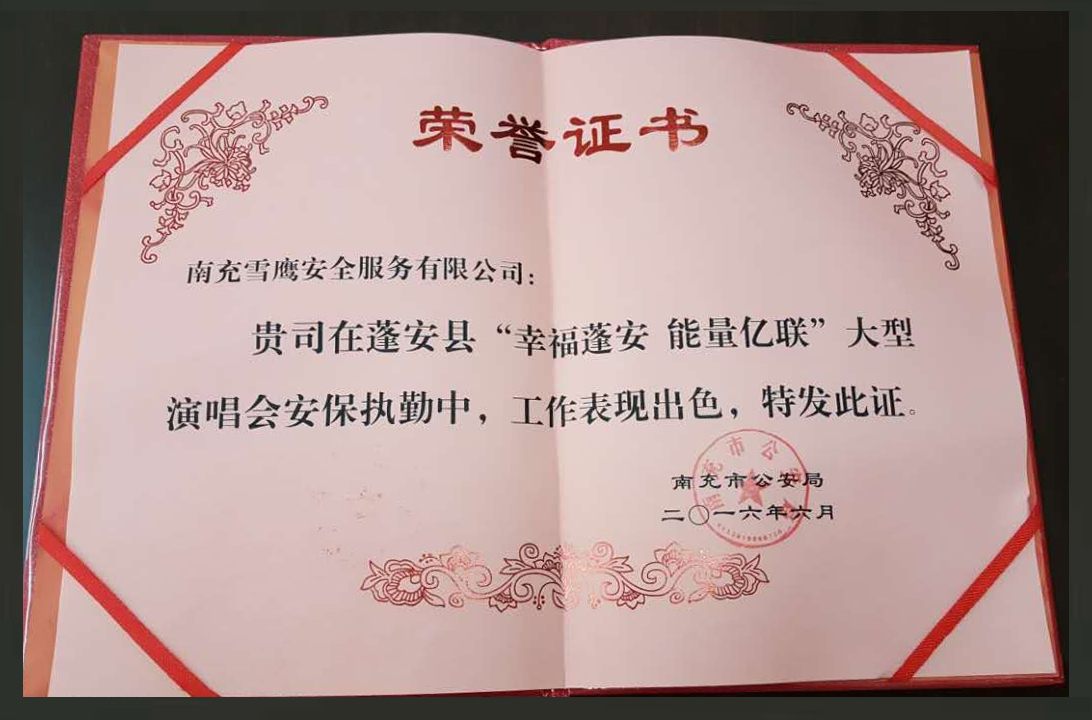 荣誉证书
南充雪鹰安全服务有限公司：
贵司在蓬安县“幸福蓬安 能量亿联”大型
演唱会安保执勤中，工作表现出色，特发此证。
南充市公安局
二〇一六年六月
南充市公安局